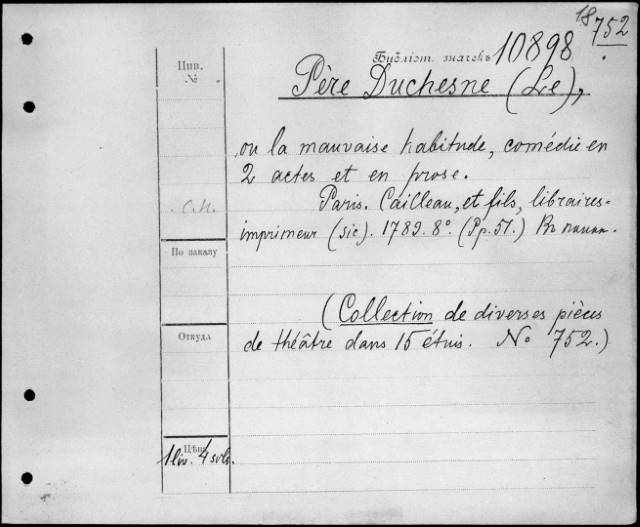 18
752
Библіот. значекъ 10898
Инв.
№
Père Duchesne (Le),
ou la mauvaise habitude, comédie en
2 actes et en prose.
Paris. Cailleau, et fils, libraires-
imprimeur (sic). 1789. 8º. (Pp. 51.) Въ папк.
С.И.
По заказу
(Collection de diverses pièces
de théâtre dans 15 étuis. № 752.)
Откуда
Цѣна
1 liv. 4 sols.